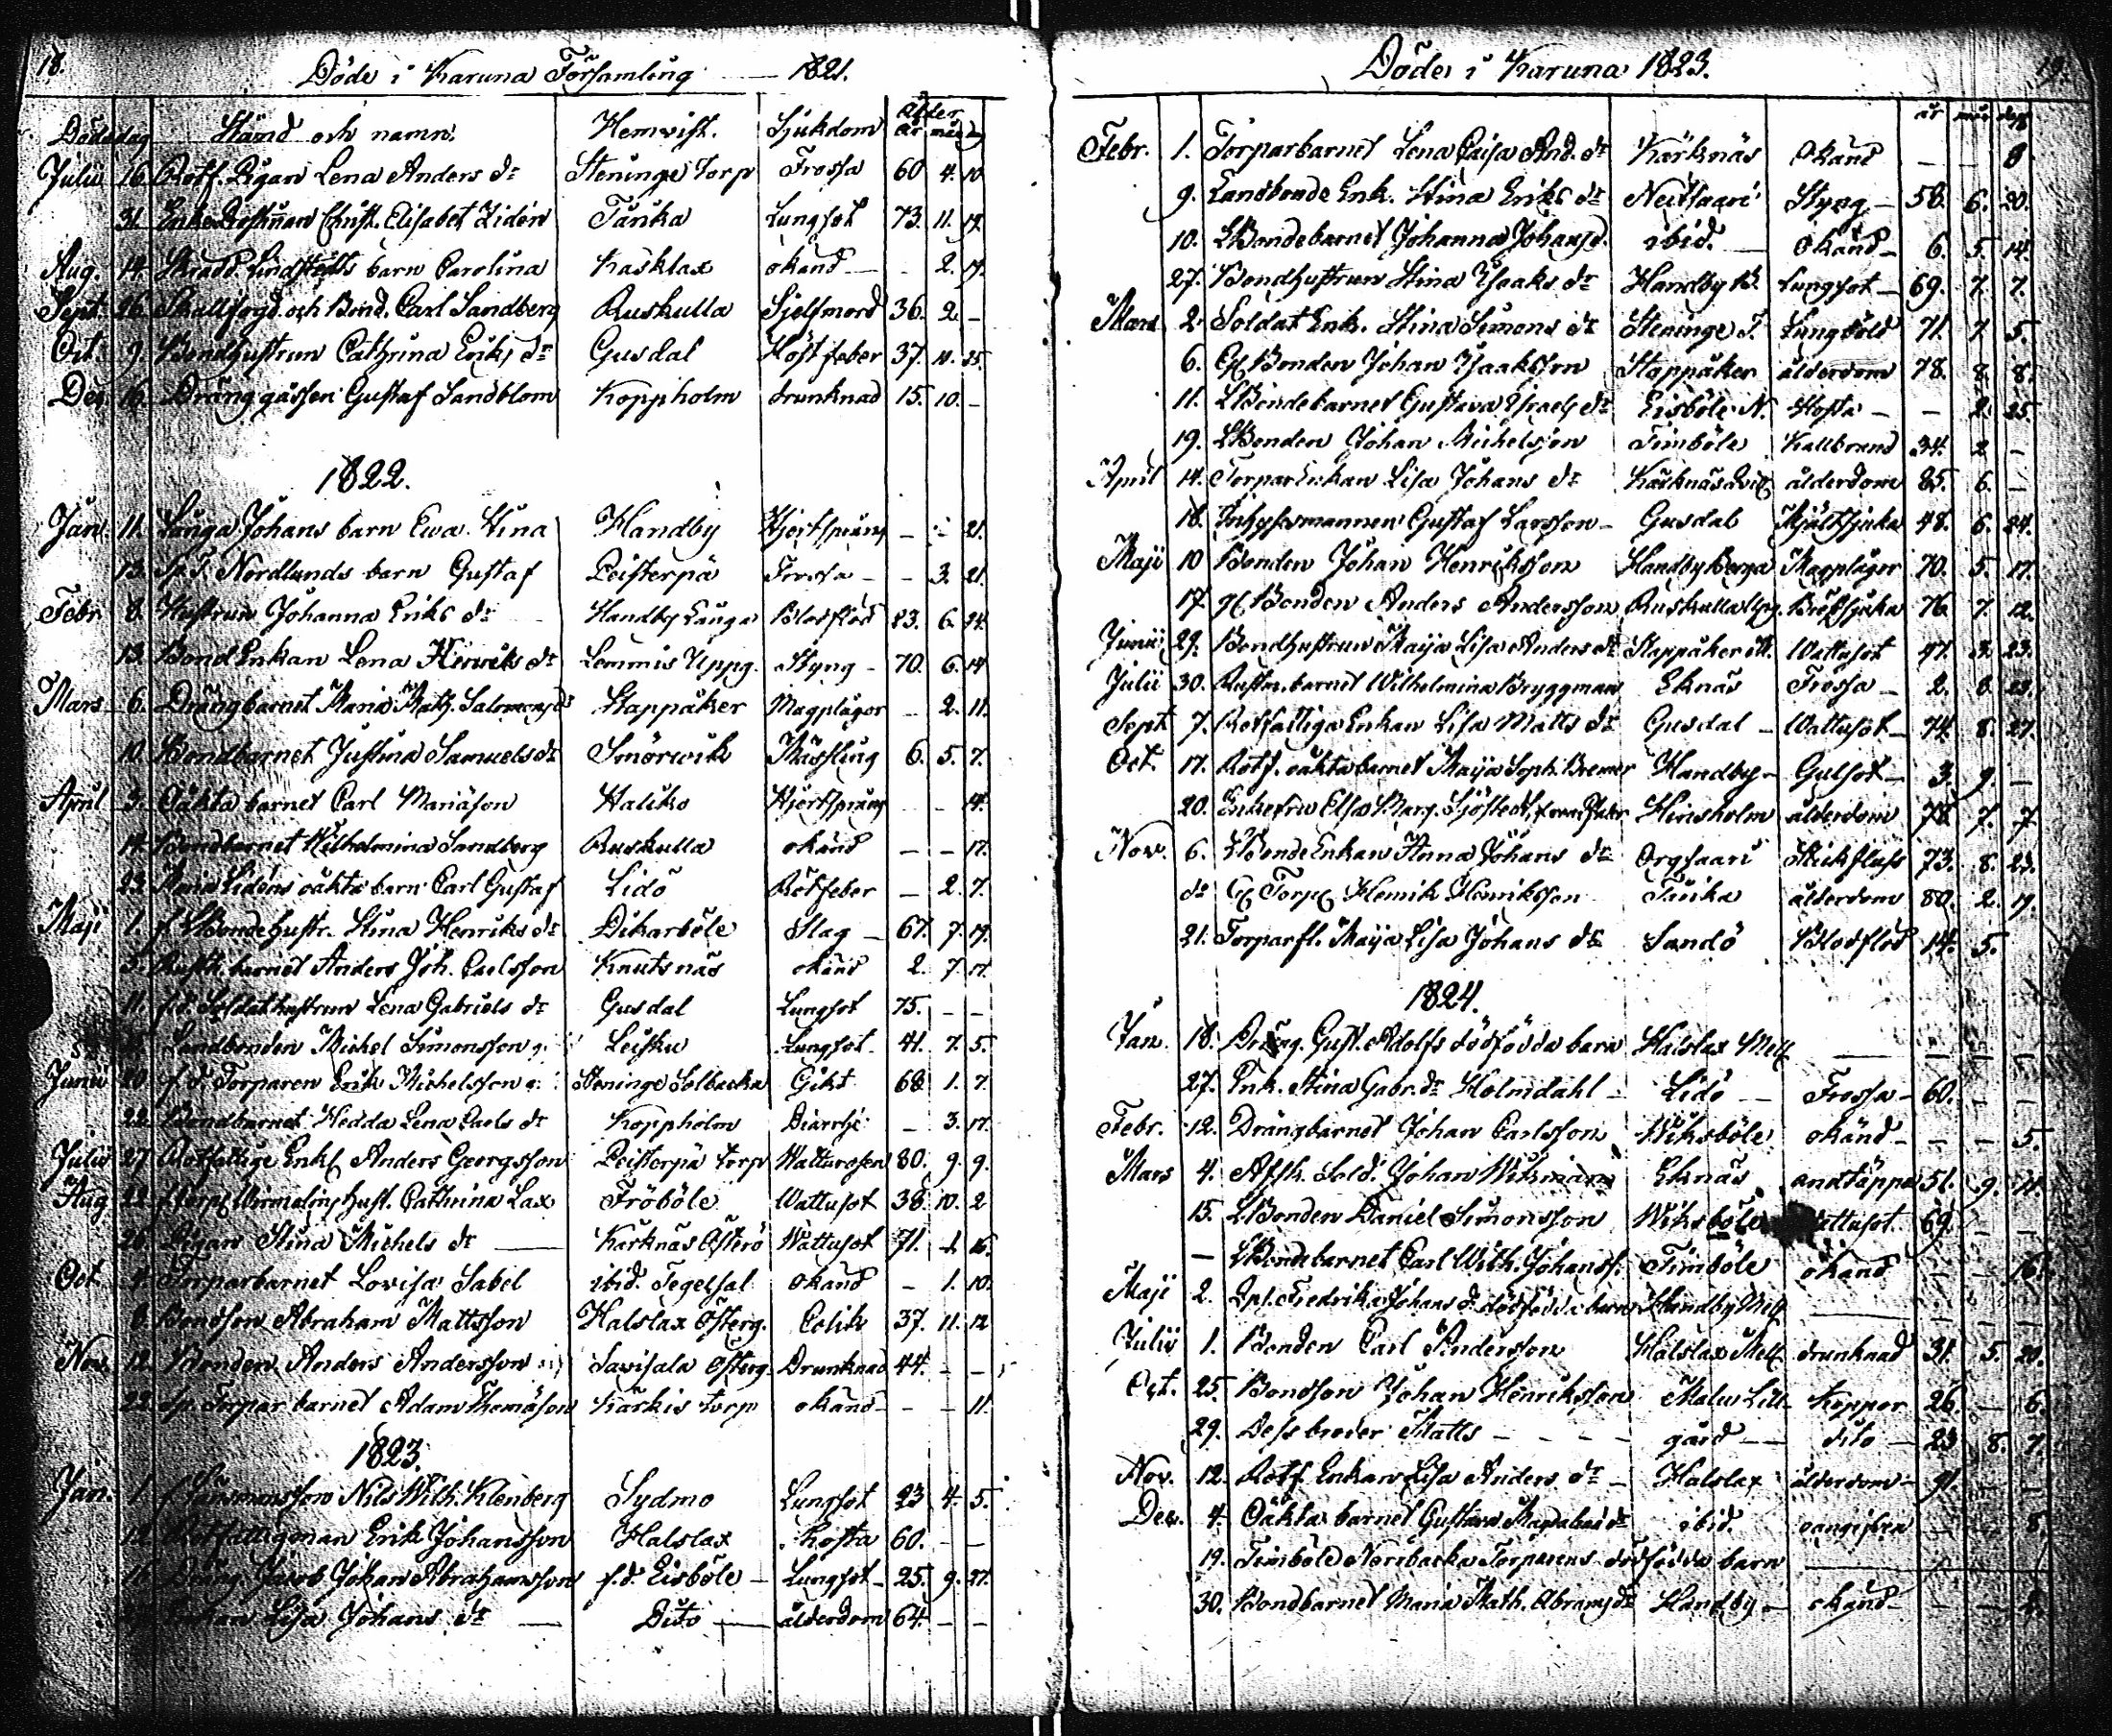 18.
Döde i Karuna Församling 1821.
Ålder
Dödsdag Stånd och namn. Hemvist. Sjukdom år mån dag
Julii 16. Rotf. Pigan Lena Anders dr Steninge Torp Frossa 60 4. 10
31. Christ. Elisabet Lidén Tänka Lungsot 73. 11. 19.
Aug. 14. Skradd. Lindstedts barn Carolina Kasklax okänd — - 2. 17.
Sept. 26. Skallfogd. och Bond. Carl Sandberg Ruskulla Sjelfmord 36. 2. -
Oct. 9. Bondhustrun Cathrina Eriks dr Gusdal Höstfeber 37. 10. 25.
Dec. 16. Dräng gässen Gustaf Sandblom Koppholm drunknad 15. 10. -
1822.
Jan. 11. Långa Johans barn Ewa Stina Handby Hjertsprång - - 21.
13. Sp. T. Nordlunds barn Gustaf Peisterpä Frossa - - 3. 21.
Febr. 8. Hustrun Johanna Eriks dr Handby Långa Blodflod 23. 6. 24.
13. BondEnkan Lena Henriks dr Lemmis Uppg. Styng - 70. 6. 14
Mars 6. Drängbarnet Maria Math. Salomonsdr Stappåker Magplågor - 2. 11.
10. Bondbarnet Justina Samuelsdr Smörwik Mässling 6. 5. 7.
April 3. Oäkta barnet Carl Mariäson Haliko Hjertsprång - - 14.
14. Bondbarnet Wilhelmina Sandberg Ruskulla okänd — - 17.
23. Maria Lidéns oäkta barn Carl Gustaf Lidö Rötfeber — 2. 7.
Maji 1. f. LBonde hustr. Stina Henriks dr Dikarböle Slag — 67. 7. 19.
5. Rusth. barnet Anders Joh. Carlsson Knutsnäs okänd 2. 7. 17.
11. f.d. Soldathustrun Lena Gabriels dr Gusdal Lungsot 75. - -
Landbonden Michel Simonsson Leisku Lungsot 41. 7. 5.
Junii 20. f.d. Torparen Erik Michelsson Steninge Solbacka Gikt 68 1. 7.
22. Bondbarnet Hedda Lena Carls dr Koppholm Diarrhé — 3. 17.
Julii 27 Rotfattige Enkl. Anders Georgsson Peisterpä Torp Watturosen 80. 9. 9.
Aug 22. Hust. Cathrina Lax Fröböle Wattusot 38. 10. 2
26. Pigan Stina Michels dr — Karknäs Österö Wattusot 71. 1. 16.
Oct. 4. Torparbarnet Lovisa Sabel ibid. Tegelsal okänd - 1. 10.
8. Bondson Abraham Mattsson Halslax Österg. Colik 37. 11. 12
Nov. 12. Bonden Anders Andersson Savisala Österg. Drunknad 44. - -
22. Sp. Torpar barnet Adam Thomäson Karkis Torp okänd - - 11.
1823.
Jan. 1. f. Länsmansson Nils Wilh. Klenberg Sydmo Lungsot 23 4. 5.
12. Rotfattigman Erik Johansson Halslax Hosta 60. - -
16. Dräng. Jacob Johan Abrahamsson f.d. Eisböle — Lungsot - 25. 9. 27.
Enkan Lisa Johans dr — Dito — ålderdom 64. - -
Döde i Karuna 1823.
19.
år mån dag
Febr. 1. Torparbarnet Lena Caisa And. dr Karknäs Okänd — — 8
9. Landbonde Enk. Stina Eriks dr Neitsaari Styng — 58. 6. 20.
10. LBondebarnet Johanna Johansd. ibid. — Okänd - 6. 5. 14.
27. Bondhustrun Stina Isaaks dr Handby B. Lungsot — 69. 7. 7.
Mars 2. Soldat Enk. Stina Simons dr Steninge T. Lungböld 71. 7 5.
6. Gl. Bonden Johan Isaaksson Stappåker ålderdom 78. 8. 8.
11. LBondebarnet Gustava Israels dr Eisböle N. Hosta — — 2. 25.
19. LBonden Johan Michelsson Timböle Kallbrand 34. 2 —
April 14. TorparEnkan Lisa Johans dr Karknäs ålderdom 85. 6. —
18. Inhysesmannen Gustaf Larsson — Gusdal Mjältsjuka 48. 6. 24.
Maji 10 Bonden Johan Henriksson Handby Berga Magplågor 70. 5. 17.
17. gl. Bonden Anders Andersson Ruskulla Upg. Bröstsjuka 76. 7. 12.
Junii 29. Bondhustrun Maija Lisa Anders dr Stappåker Wattusot 47. 2. 23.
Julii 30. Rusth. barnet Wilhelmina Bryggman Eknäs Frossa — 2. 8. 23.
Sept 7. Rotfattiga Enkan Lisa Matts dr Gusdal — Wattusot — 74. 8. 27.
Oct. 17. Rotf. oäkta barnet Maija Soph. Bremer Handby — Gulsot — 3. 9. —
20. Enkefru Elsa Marg. Sjöstedt Hinsholm ålderdom 78. 7. 7
Nov. 6. LBondeEnkan Anna Johans dr Orgsaari Stickfluss 73. 8. 23.
dr Gl. Torp. Henrik Henriksson Tänka ålderdom 80. 2. 19.
21. Torparfl. Maija Lisa Johans dr Sandö Blodflod 14. 5.
1824.
Jan. 18. Dräng. Gust. Adolfs dödfödda barn Halslax Mell. — — —
27. Enk. Stina Gabr. dr Holmdahl — Lidö — Frossa — 60. — —
Febr. 12. Drängbarnet Johan Carlsson Wiksböle okänd — — — 5.
Mars 4. Afsk. Sold. Johan Wikman Eknäs andtäppa 51. 9. 11.
15. LBonden Daniel Simonsson Wiksböle Wattusot. 69. — —
— LBondebarnet Carl Wilh. Johanss. Timböle okänd — — 16.
Maji 2. Fredrika Johans dr dödfödda barn Handby Mell. — — —
Julii 1. Bonden Carl Andersson Halslax Mell. drunknad 31. 5. 20.
Oct. 25. Bondson Johan Henriksson Malu Lill- Koppor 26. — 6.
29. Dess broder Matts - - - - gård — dito — 23 8. 7.
Nov. 12. Rotf. Enkan Lisa Anders dr — Halslax ålderdom — 91. — —
Dec. 4. Oäkta barnet Gustava Magdalenä dr ibid. oangifven — — 8.
19. Timböle Norrbacka Torparens dödfödda barn
30. Bondbarnet Maria Math. Abrams dr Handby — okänd — — —